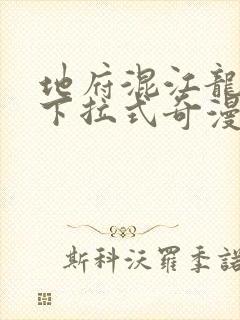 地府混江龍
下拉式奇漫
斯科沃羅季諾